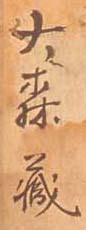 大森藏